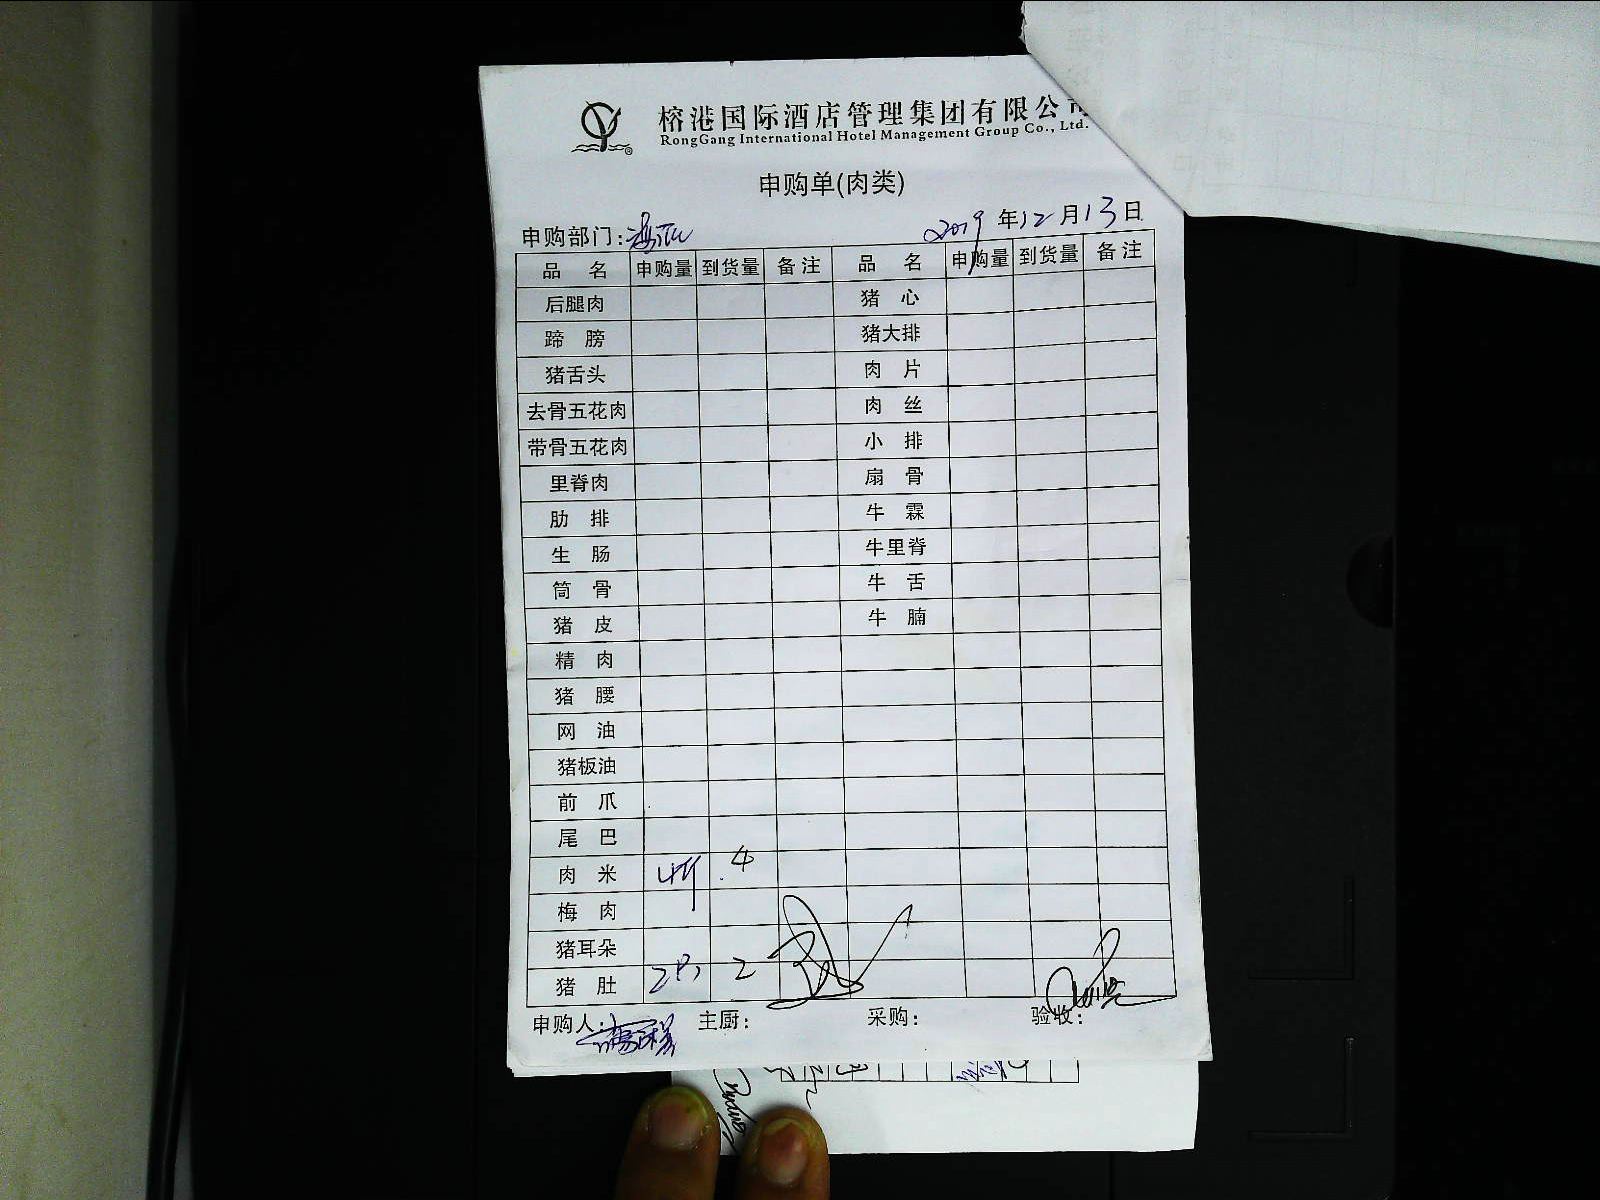 榕港国际酒店管理集团有限公司
RongGang International Hotel Management Group Co., Ltd.
申购单(肉类)
申购部门:
2019年12月13日
品 名 申购量 到货量 备注 品 名 申购量 到货量 备注
后腿肉 猪 心
蹄 膀 猪大排
猪舌头 肉 片
去骨五花肉 肉 丝
带骨五花肉 小 排
里脊肉 扇 骨
肋 排 牛 霖
生 肠 牛里脊
筒 骨 牛 舌
猪 皮 牛 腩
精 肉
猪 腰
网 油
猪板油
前 爪
尾 巴
肉 米 4斤 4
梅 肉
猪耳朵
猪 肚 2 2
申购人: 主厨: 采购: 验收: